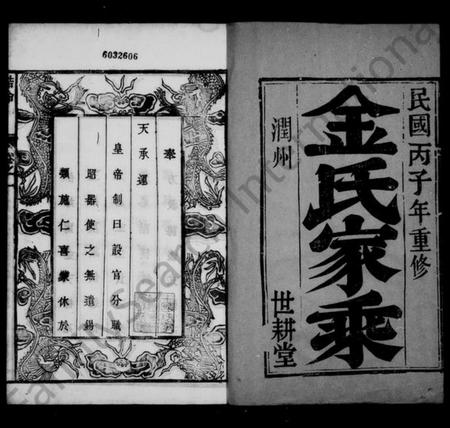 民國丙子年重修
金氏家乘
潤州
世耕堂
6032606
奉
天承運
皇帝制曰設官分職
昭器使之無遺錫
類施仁喜慶休於
FamilySearch International